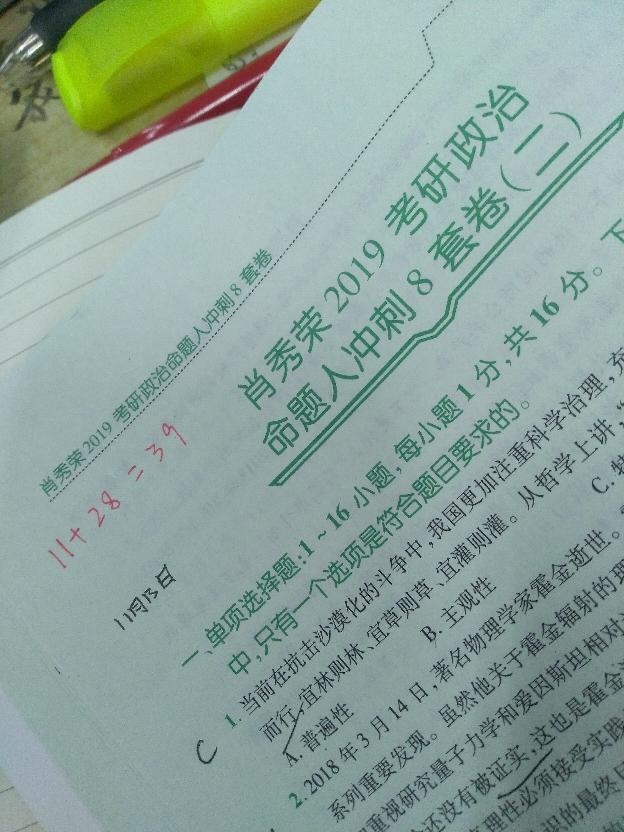 肖秀荣 2019 考研政治命题人冲刺 8 套卷
肖秀荣 2019 考研政治
命题人冲刺 8 套卷(二)
11+28=39
11月13日
一、单项选择题:1~16 小题,每小题 1 分,共 16 分。下
中,只有一个选项是符合题目要求的。
C
1. 当前在抗击沙漠化的斗争中,我国更加注重科学治理,充
而行,宜林则林、宜草则草、宜灌则灌。从哲学上讲,“
A. 普遍性 B. 主观性 C. 特
2. 2018 年 3 月 14 日,著名物理学家霍金逝世。
系列重要发现。虽然他关于霍金辐射的理
重视研究量子力学和爱因斯坦相对
还没有被证实,这也是霍金
理性必须接受实践
识的最终目